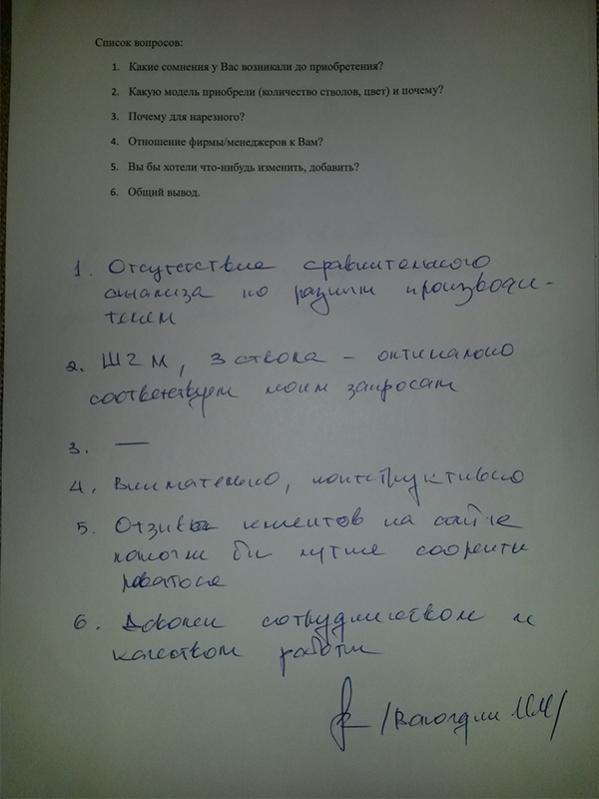 Список вопросов:
1. Какие сомнения у Вас возникали до приобретения?
2. Какую модель приобрели (количество стволов, цвет) и почему?
3. Почему для нарезного?
4. Отношение фирмы/менеджеров к Вам?
5. Вы бы хотели что-нибудь изменить, добавить?
6. Общий вывод.
1. Отсутствие сравнительного
анализа по разным производи-
телям
2. Ш2М, 3 ствола - оптимально
соответствует моим запросам
3. —
4. Внимательно, конструктивно
5. Отзывы клиентов на сайте
помогли бы лучше сориенти
роваться
6. Доволен сотрудничеством и
качеством работы